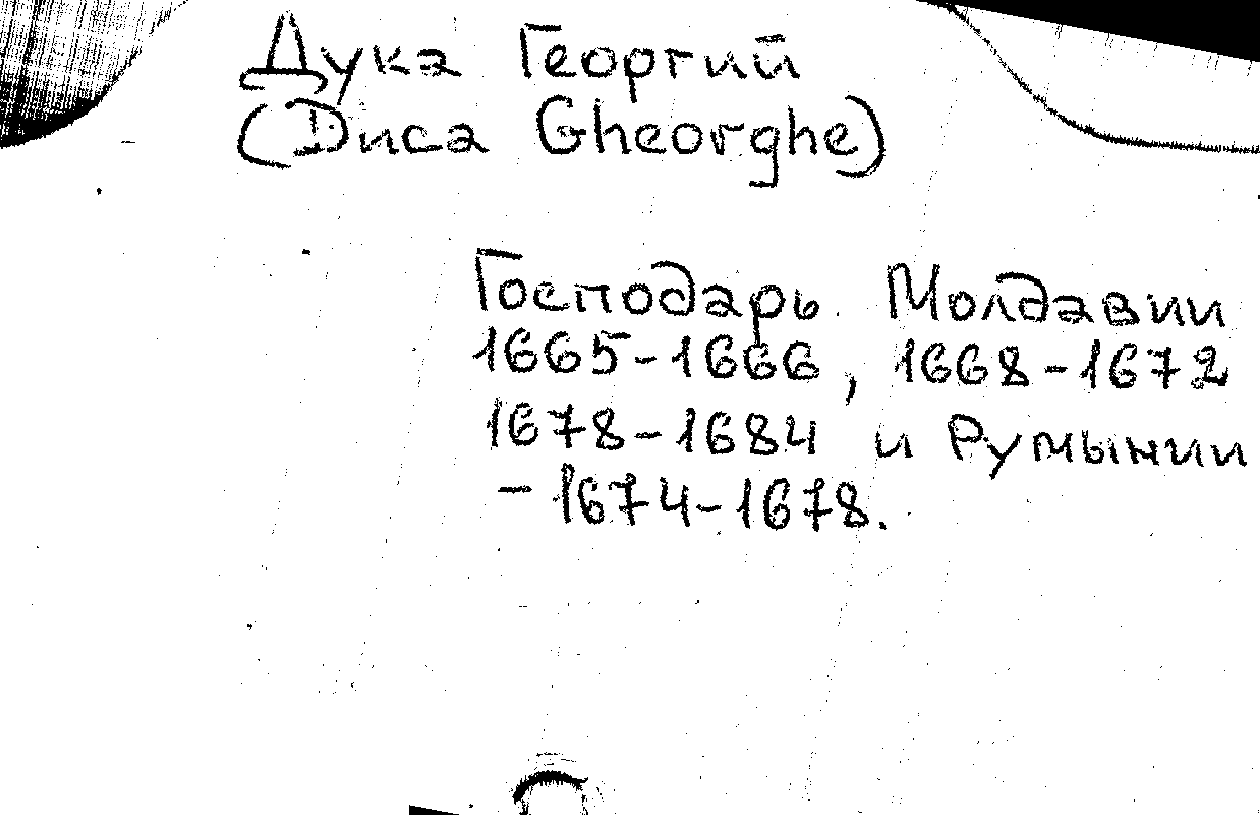 Дука Георгий
(Duca Gheorghe)
Господарь Молдавии
1665-1666, 1668-1672
1678-1684 и Румынии
- 1674-1678.